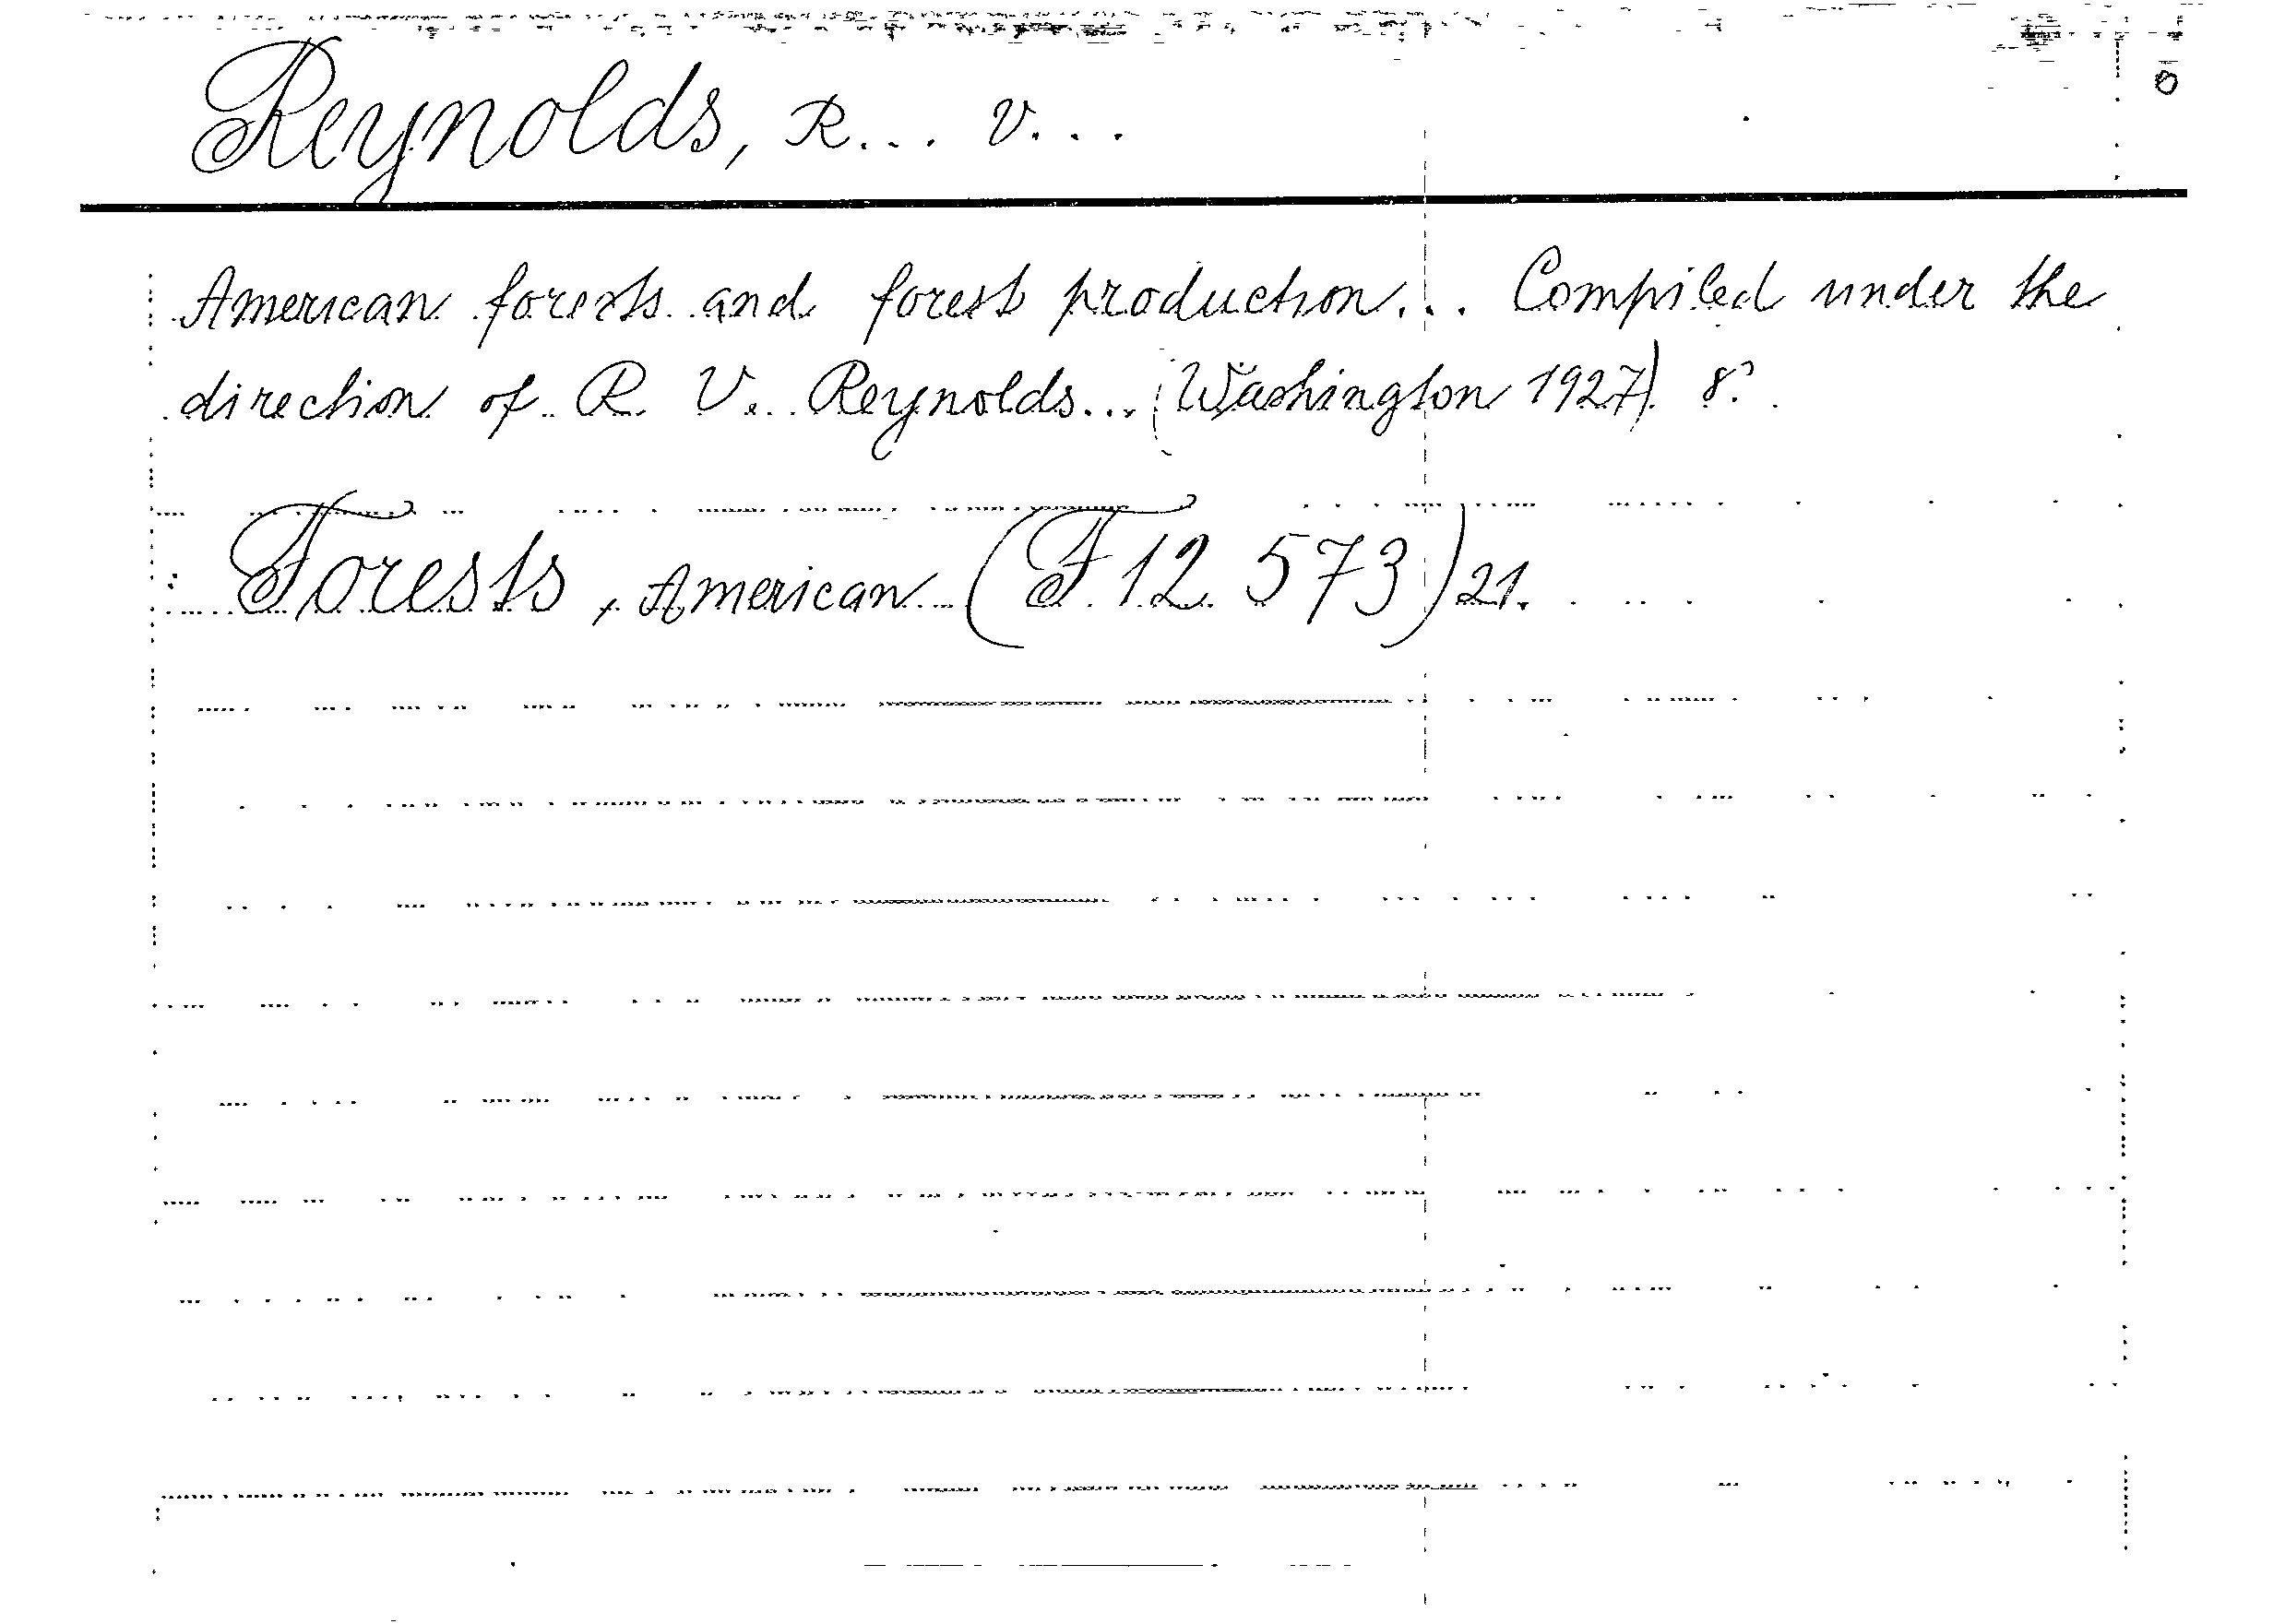 Reynolds, R... V...
American forests and forest production... Compiled under the
direction of R. V. Reynolds... (Washington 1927). 8°.
Forests, American (F 12. 573) 21.